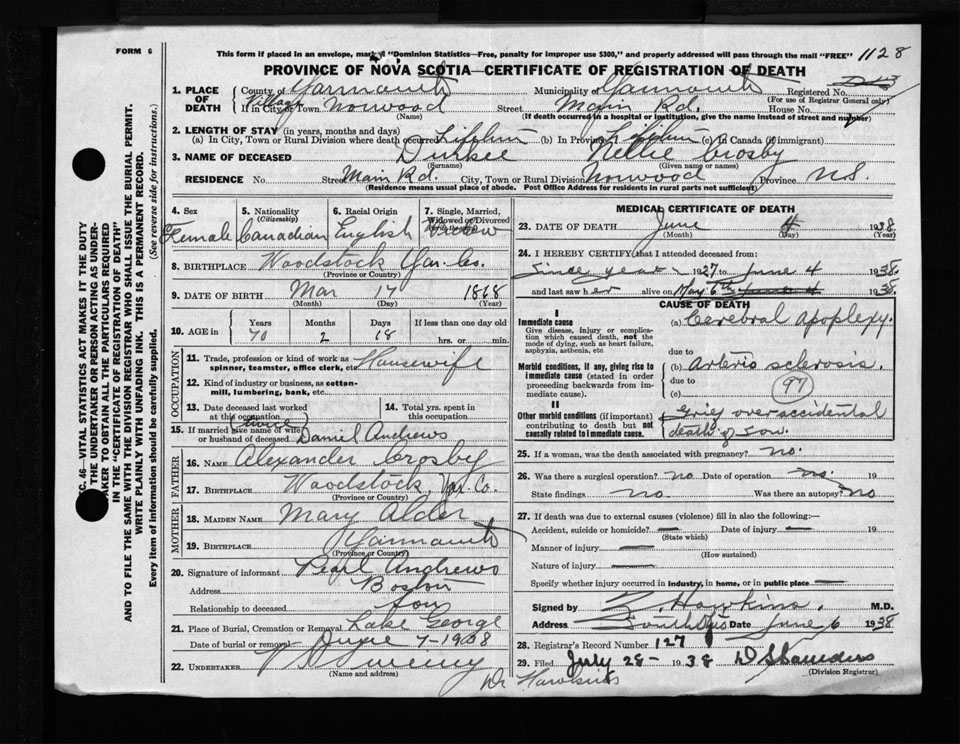 FORM 6
This form if placed in an envelope, mark "Dominion Statistics—Free, penalty for improper use $300," and properly addressed will pass through the mail "FREE"
1128
PROVINCE OF NOVA SCOTIA—CERTIFICATE OF REGISTRATION OF DEATH
1. PLACE OF DEATH
County of Yarmouth Municipality of Yarmouth Registered No.
(For use of Registrar General only)
Village If in City or Town Norwood Street Main Rd. House No.
(Name) (If death occurred in a hospital or institution, give the name instead of street and number)
2. LENGTH OF STAY (in years, months and days)
(a) In City, Town or Rural Division where death occurred Lifetime (b) In Province Lifetime (c) In Canada (if immigrant)
3. NAME OF DECEASED Durkee Nellie Crosby
(Surname) (Given name or names)
RESIDENCE No. Street Main Rd. City, Town or Rural Division Norwood Province N.S.
(Residence means usual place of abode. Post Office Address for residents in rural parts not sufficient)
4. Sex
Female
5. Nationality (Citizenship)
Canadian
6. Racial Origin
English
7. Single, Married, Widowed or Divorced
Widow
8. BIRTHPLACE Woodstock Yar. Co.
(Province or Country)
9. DATE OF BIRTH Mar 17 1868
(Month) (Day) (Year)
10. AGE in Years Months Days If less than one day old
70 2 18 hrs. or min.
OCCUPATION
11. Trade, profession or kind of work as spinner, teamster, office clerk, etc. Housewife
12. Kind of industry or business, as cotton-mill, lumbering, bank, etc.
13. Date deceased last worked at this occupation
14. Total yrs. spent in this occupation
(twice)
15. If married give name of wife or husband of deceased Daniel Andrews
FATHER
16. NAME Alexander Crosby
17. BIRTHPLACE Woodstock, Yar. Co.
(Province or Country)
MOTHER
18. MAIDEN NAME Mary Alder
19. BIRTHPLACE Yarmouth
(Province or Country)
20. Signature of informant Pearl Andrews
Address Boston
Relationship to deceased Son
21. Place of Burial, Cremation or Removal Lake George
Date of burial or removal June 7-1938
22. UNDERTAKER Sweeny
(Name and address)
Dr Hawkins
MEDICAL CERTIFICATE OF DEATH
23. DATE OF DEATH June 4 1938
(Month) (Day) (Year)
24. I HEREBY CERTIFY that I attended deceased from:
Since year 1927 to June 4 1938
and last saw her alive on May 6th June 4 1938
CAUSE OF DEATH
I
Immediate cause
Give disease, injury or complication which caused death, not the mode of dying, such as heart failure, asphyxia, asthenia, etc
(a) Cerebral Apoplexy.
due to
Morbid conditions, if any, giving rise to immediate cause (stated in order proceeding backwards from immediate cause).
(b) Arterio sclerosis.
due to
(c) 97
II
Other morbid conditions (if important) contributing to death but not causally related to immediate cause.
Grief over accidental
death of son.
25. If a woman, was the death associated with pregnancy? no.
26. Was there a surgical operation? no Date of operation no. 19
State findings no Was there an autopsy? no
27. If death was due to external causes (violence) fill in also the following:—
Accident, suicide or homicide? — Date of injury — 19
(State which)
Manner of injury —
(How sustained)
Nature of injury —
Specify whether injury occurred in industry, in home, or in public place —
Signed by Z. Hawkins. M.D.
Address South Ohio Date June 6 1938
28. Registrar's Record Number 127
29. Filed July 28- 1938 D Saunders
(Division Registrar)
46—VITAL STATISTICS ACT MAKES IT THE DUTY
THE UNDERTAKER OR PERSON ACTING AS UNDER-
TAKER TO OBTAIN ALL THE PARTICULARS REQUIRED
IN THE "CERTIFICATE OF REGISTRATION OF DEATH"
AND TO FILE THE SAME WITH THE DIVISION REGISTRAR WHO SHALL ISSUE THE BURIAL PERMIT.
WRITE PLAINLY WITH UNFADING INK. THIS IS A PERMANENT RECORD.
Every item of information should be carefully supplied. (See reverse side for instructions.)